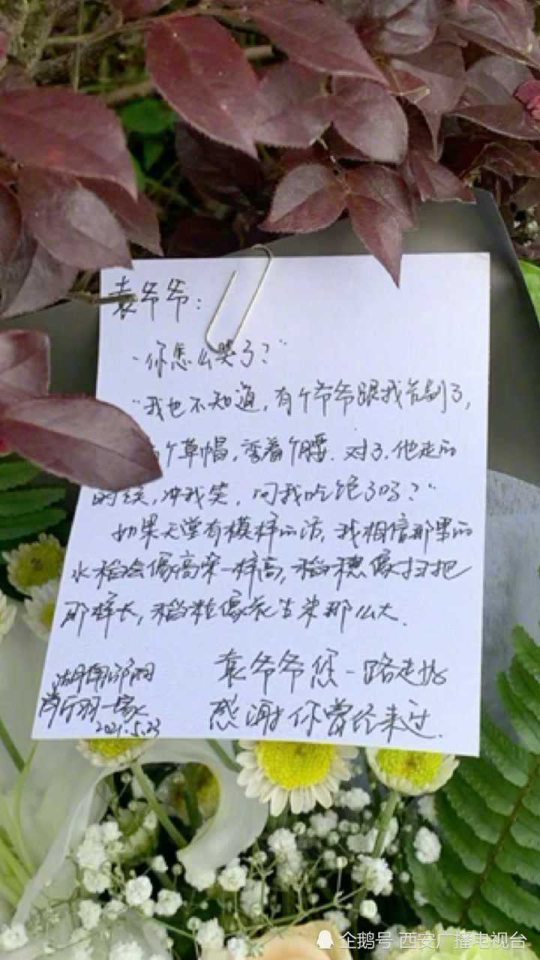 袁爷爷：
“你怎么哭了？”
“我也不知道，有个爷爷跟我告别了，
个草帽，弯着个腰．对了，他走的
时候，冲我笑，问我吃饱了吗？”
如果天堂有模样的话，我相信那里的
水稻会像高粱一样高，稻穗像扫把
那样长，稻粒像花生米那么大．
袁爷爷您一路走好
感谢你曾经来过．
湖南邵阳
一家
2021.5.23
企鹅号 西安广播电视台